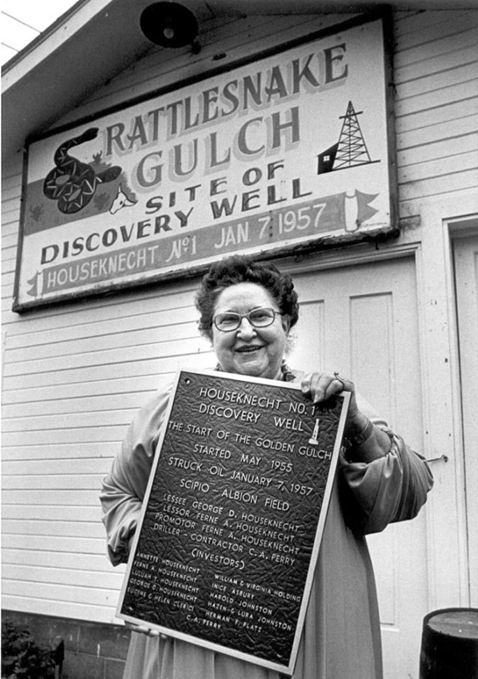 RATTLESNAKE
GULCH
SITE OF
DISCOVERY WELL
HOUSEKNECHT No1 JAN. 7, 1957
HOUSEKNECHT NO. 1
DISCOVERY WELL
THE START OF THE GOLDEN GULCH
STARTED MAY 1955
STRUCK OIL JANUARY 7, 1957
SCIPIO - ALBION FIELD
LESSEE GEORGE D. HOUSEKNECHT
LESSOR FERNE A. HOUSEKNECHT
PROMOTOR FERNE A. HOUSEKNECHT
DRILLER - CONTRACTOR C. A. PERRY
(INVESTORS)
ANNETTE HOUSEKNECHT
FERNE A. HOUSEKNECHT
LILLIAN T. HOUSEKNECHT
GEORGE D. HOUSEKNECHT
EUGENE & HELEN CLERICI
WILLIAM & VIRGINIA HOLDING
INICE ASBURY
HAROLD JOHNSTON
HAZEN & LURA JOHNSTON
HERMAN F. PLATZ
C. A. PERRY